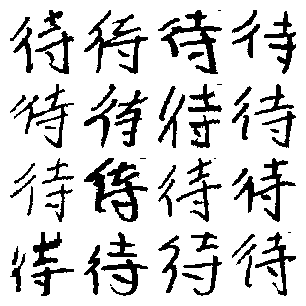 待待待待
待待待待
待待待待
待待待待